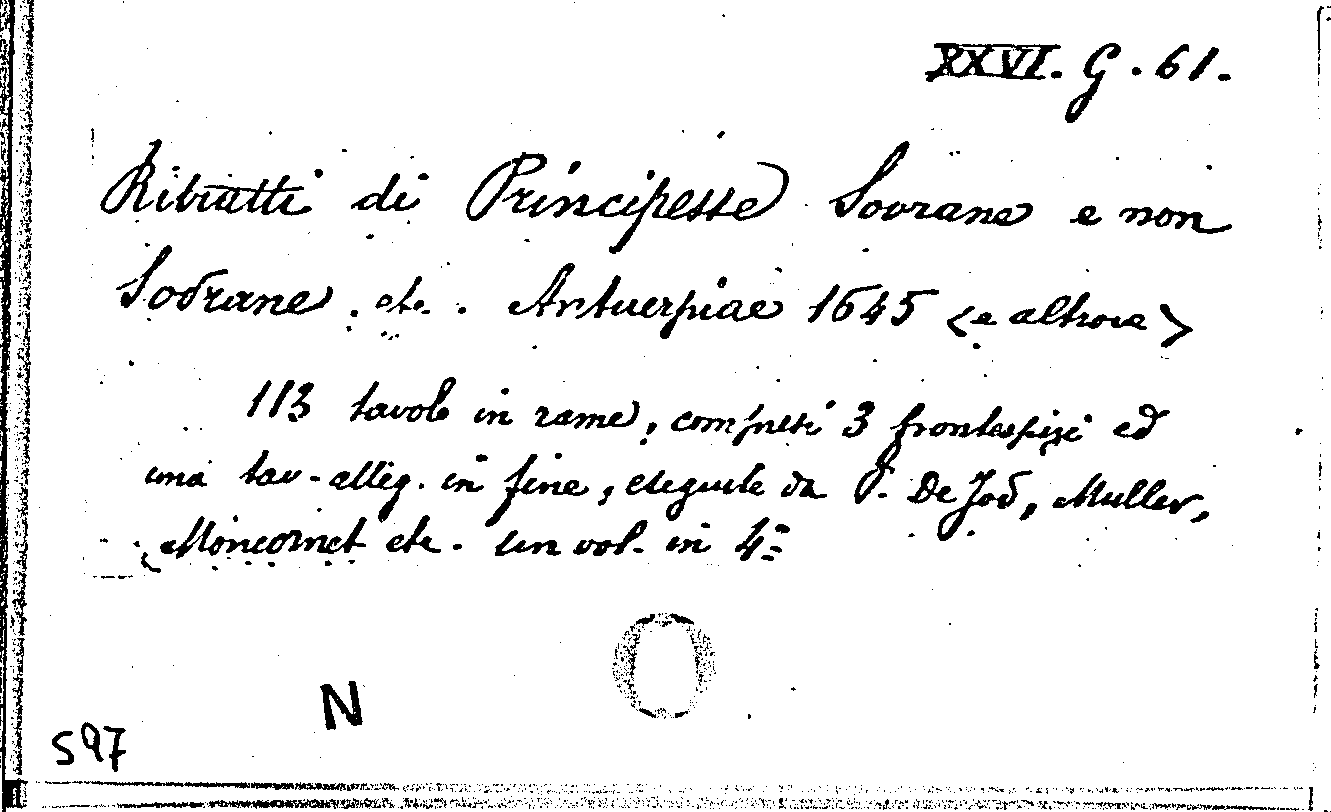 XXVI. G. 61.
Ritratti di Principesse Sovrane e non
Sovrane. etc. Antuerpiae 1645 <e altrove>
113 tavole in rame, compresi 3 frontespizi ed
una tav. alleg. in fine, eseguite da P. De Jod, Muller,
Moncornet etc. Un vol. in 4º
N
597